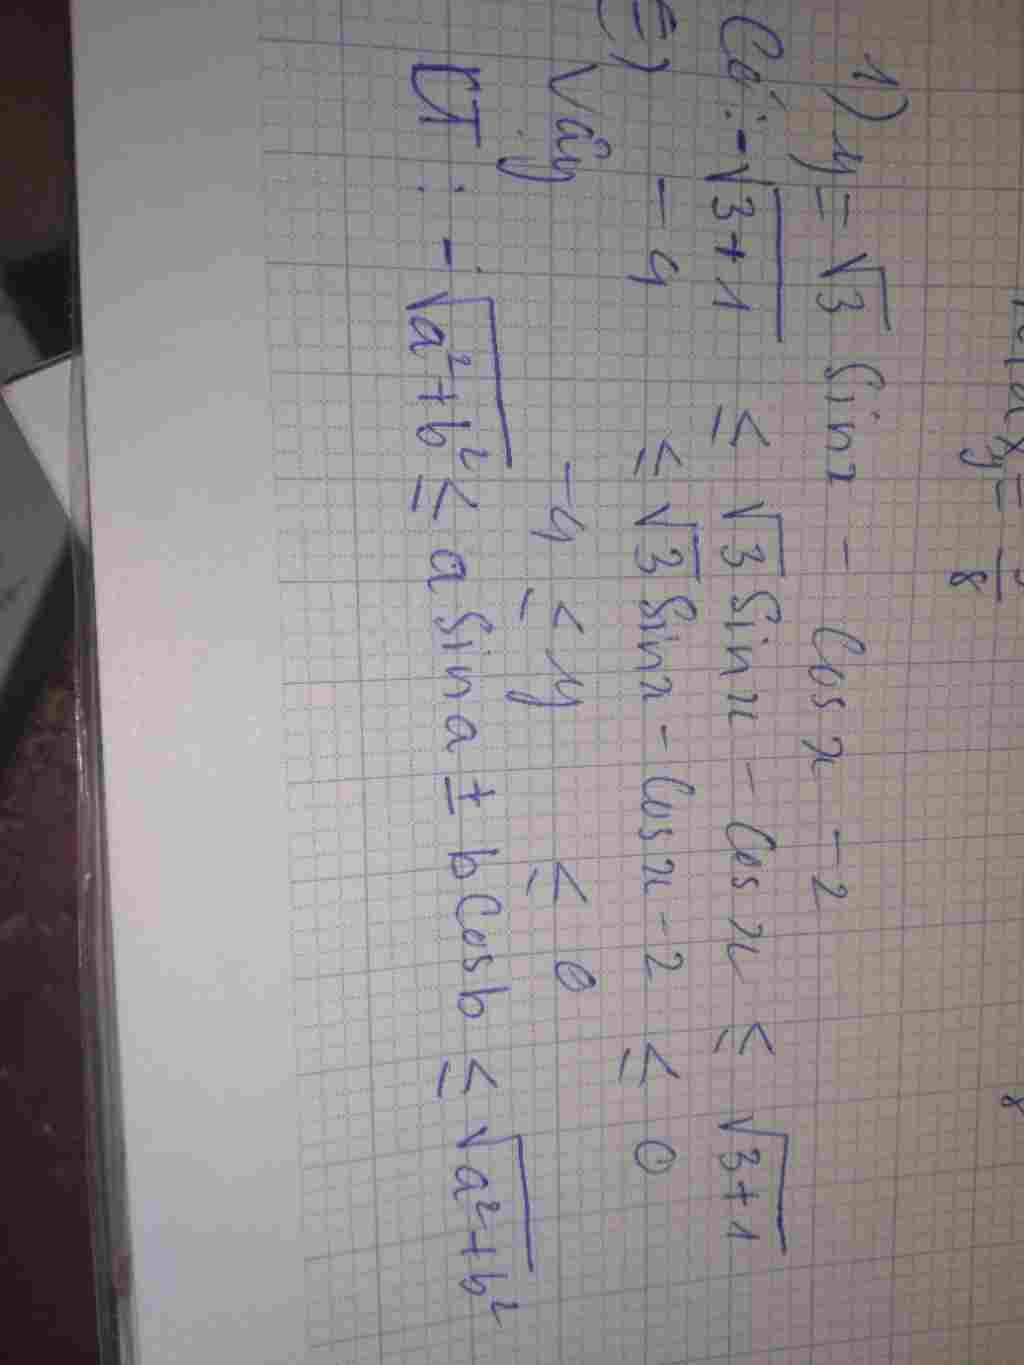 y = 
8
8
1) y = √3 Sin x - Cos x - 2
Có: -√3+1 ≤ √3 Sin x - Cos x ≤ √3+1
(=) -4 ≤ √3 Sin x - Cos x - 2 ≤ 0
Vậy -4 ≤ y ≤ 0
CT: -√a²+b² ≤ a Sin a ± b Cos b ≤ √a²+b²